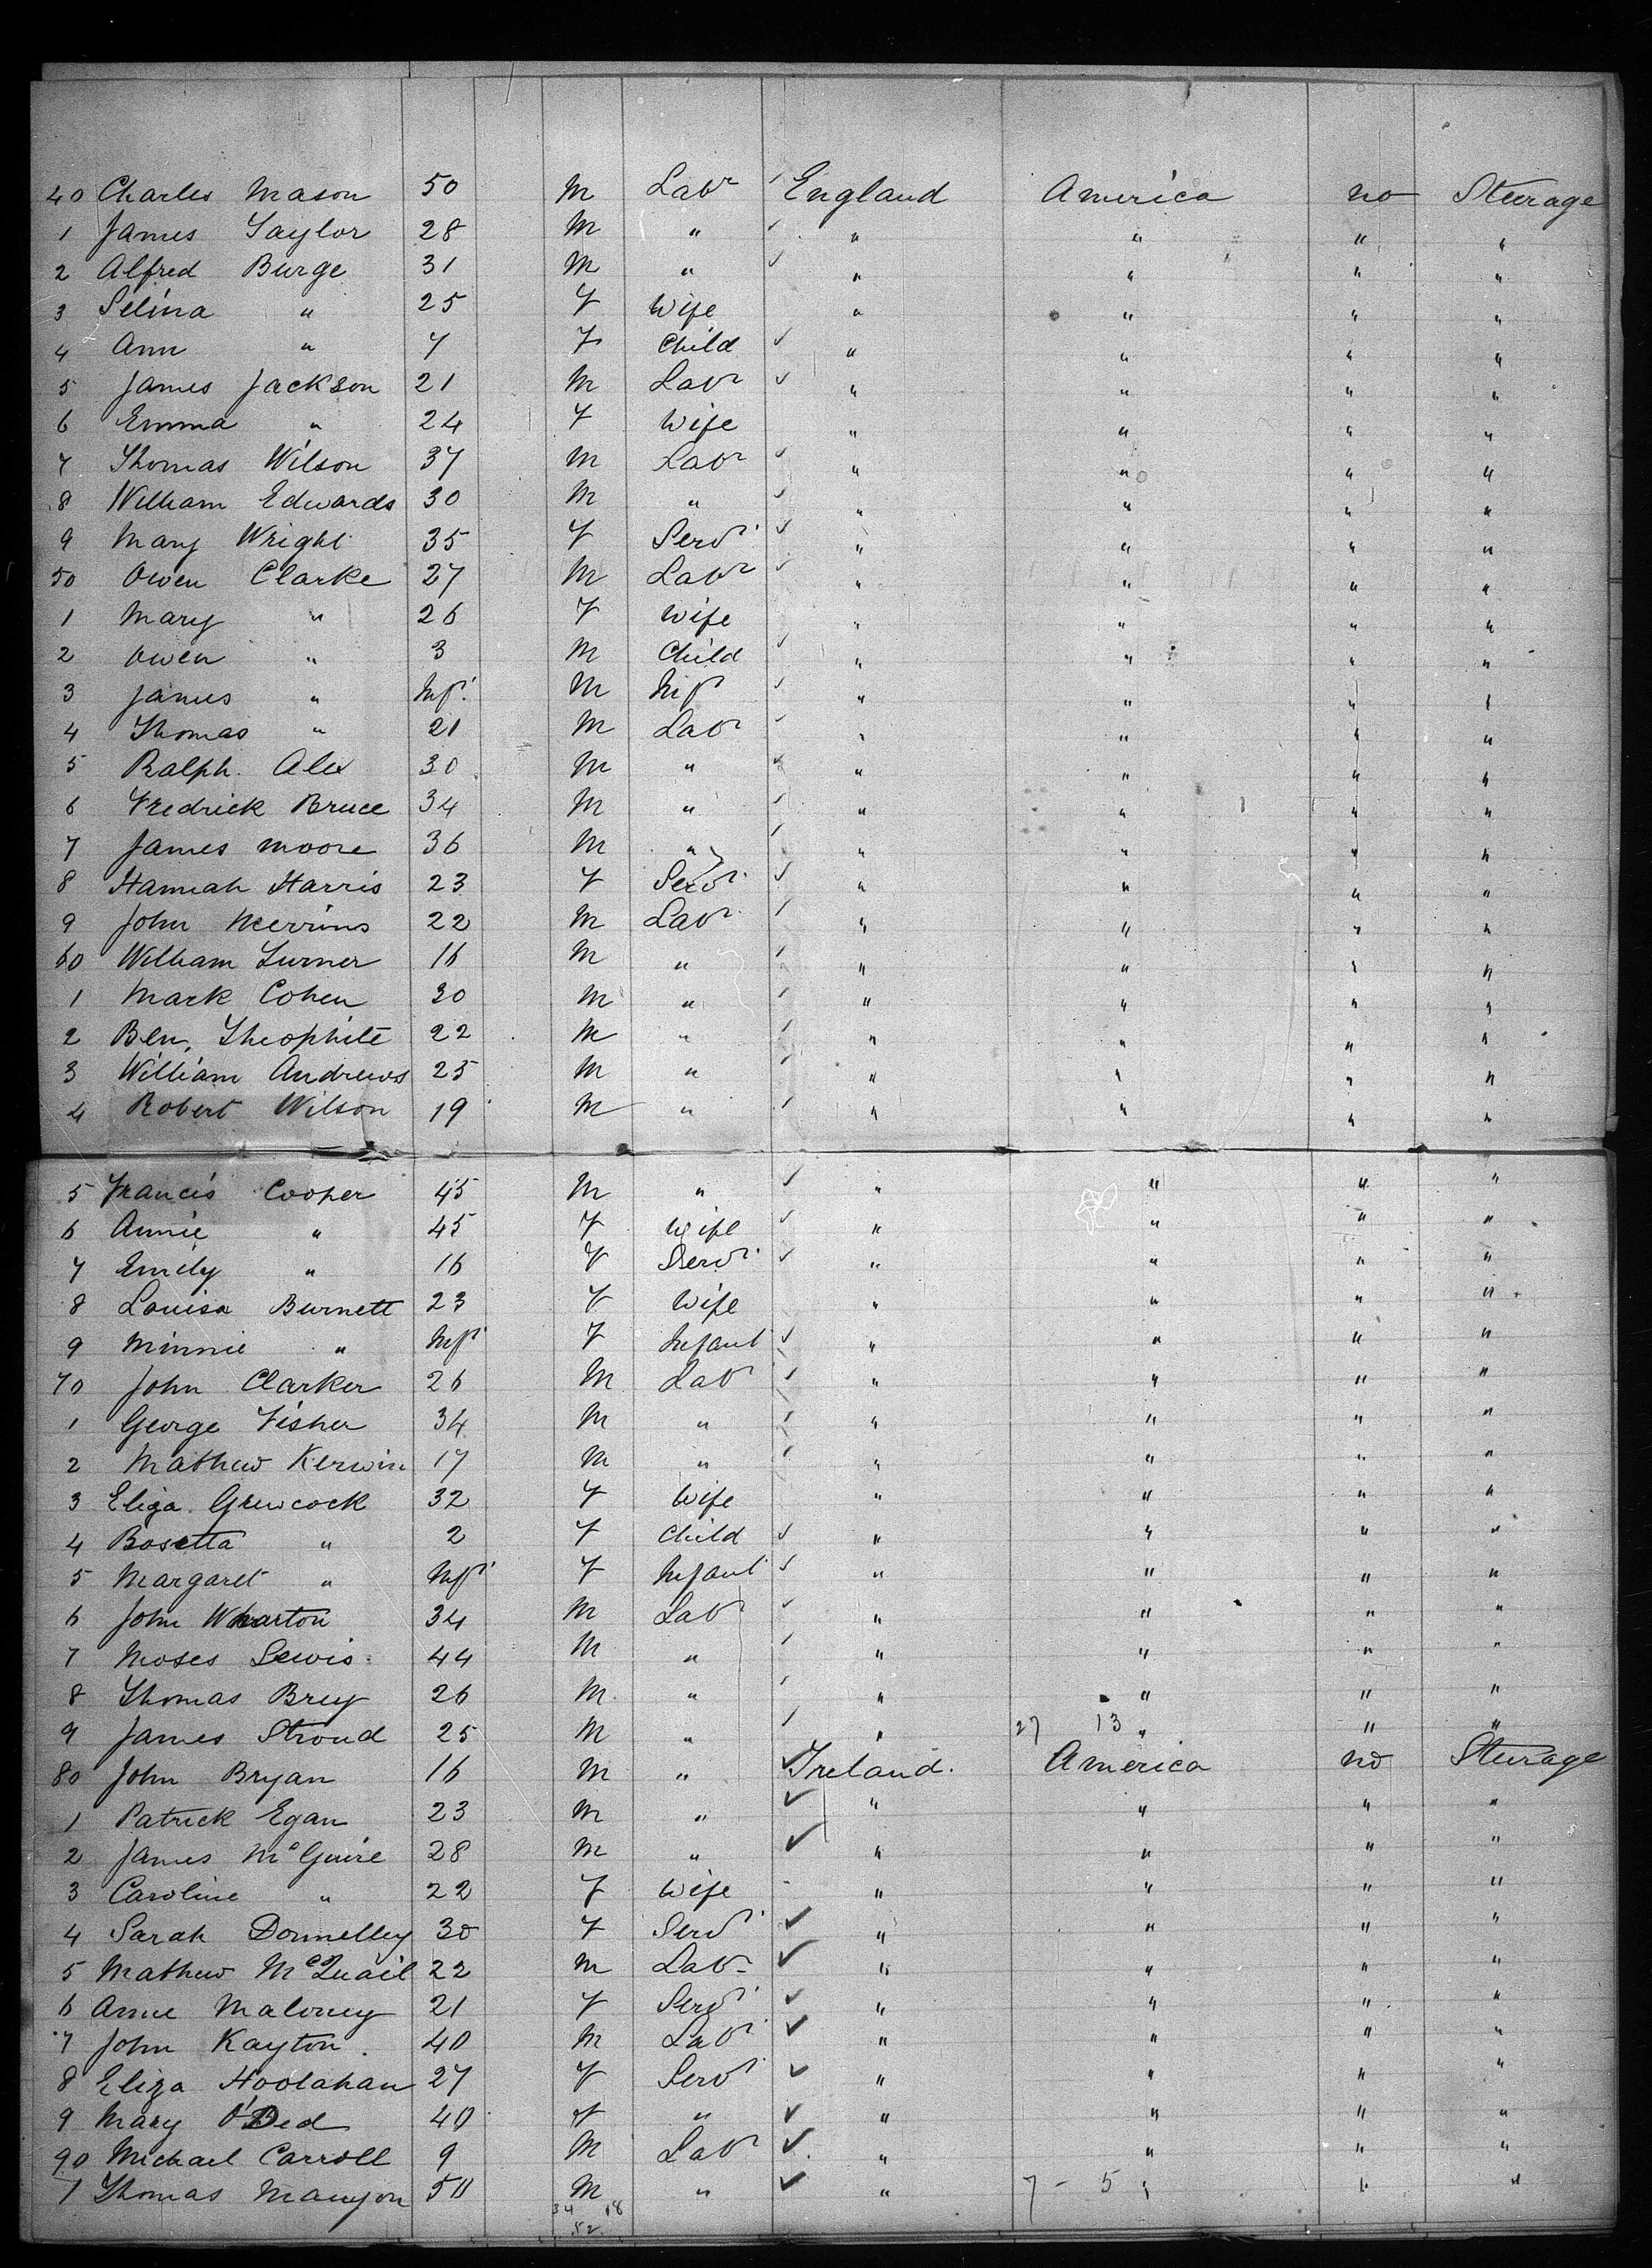 40 Charles Mason 50 M Labr England America no Steerage
1 James Taylor 28 M " " " " "
2 Alfred Burge 31 M " " " " "
3 Selina " 25 F Wife " " " "
4 Ann " 7 F Child " " " "
5 James Jackson 21 M Labr " " " "
6 Emma " 24 F Wife " " " "
7 Thomas Wilson 37 M Labr " " " "
8 William Edwards 30 M " " " " "
9 Mary Wright 35 F Servt " " " "
50 Owen Clarke 27 M Labr " " " "
1 Mary " 26 F Wife " " " "
2 Owen " 3 M Child " " " "
3 James " Inft M Inft " " " "
4 Thomas " 21 M Labr " " " "
5 Ralph Alex 30 M " " " " "
6 Fredrick Bruce 34 M " " " " "
7 James Moore 36 M " " " " "
8 Hannah Harris 23 F Servt " " " "
9 John Merrins 22 M Labr " " " "
60 William Turner 16 M " " " " "
1 Mark Cohen 30 M " " " " "
2 Ben. Theophile 22 M " " " " "
3 William Andrews 25 M " " " " "
4 Robert Wilson 19 M " " " " "
5 Francis Cooper 45 M " " " " "
6 Annie " 45 F Wife " " " "
7 Emily " 16 F Servt " " " "
8 Louisa Burnett 23 F Wife " " " "
9 Minnie " Inft F Infant " " " "
70 John Clarker 26 M Labr " " " "
1 George Fisher 34 M " " " " "
2 Mathew Kerwin 17 M " " " " "
3 Eliza Grewcock 32 F Wife " " " "
4 Rosetta " 2 F Child " " " "
5 Margaret " Inft F Infant " " " "
6 John Wharton 34 M Labr " " " "
7 Moses Lewis 44 M " " " " "
8 Thomas Brey 26 M " " " " "
9 James Stroud 25 M " " 27 13 " " "
80 John Bryan 16 M " Ireland. America no Steerage
1 Patrick Egan 23 M " " " " "
2 James McGuire 28 M " " " " "
3 Caroline " 22 F Wife " " " "
4 Sarah Donnelley 30 F Servt " " " "
5 Mathew McQuail 22 M Labr " " " "
6 Anne Maloney 21 F Servt " " " "
7 John Kayton 40 M Labr " " " "
8 Eliza Hoolahan 27 F Servt " " " "
9 Mary 40 F " " " " "
90 Michael Carroll 9 M Labr " " " "
1 Thomas 50 M " " 7 - 5 " " "
34 18
52